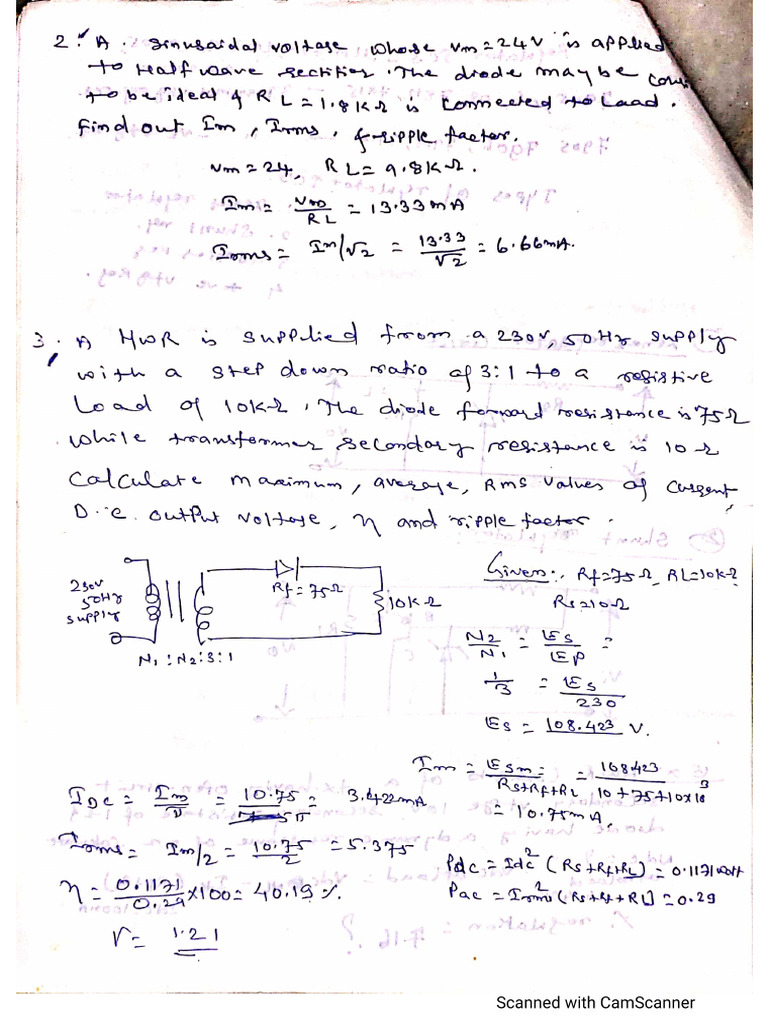 2. A. sinusoidal voltage whose Vm=24V is applied
to Half wave rectifier. The diode may be
to be ideal & RL=1.8KΩ is connected to Load.
Find out Im, Irms, & ripple factor.
Vm=24, RL=9.8KΩ.
Im = Vm/RL = 13.33mA
Irms = Im/√2 = 13.33/√2 = 6.66mA.
3. A HWR is supplied from a 230V, 50Hz supply
with a step down ratio of 3:1 to a resistive
Load of 10KΩ. The diode forward resistance is 75Ω
while transformer secondary resistance is 10Ω
Calculate maximum, average, RMS values of current
D.C. output voltage, η and ripple factor.
230V
50Hz
supply
Rf=75Ω
10KΩ
N1:N2:3:1
Given:. Rf=75Ω, RL=10KΩ
Rs=10Ω
N2/N1 = Es/Ep =
1/3 = Es/230
Es = 108.423 V.
Im = Esm/Rs+Rf+RL = 108.423/10+75+10x10³
= 10.75mA.
IDC = Im/π = 10.75/π = 3.422mA
Irms = Im/2 = 10.75/2 = 5.375
Pdc = Idc² (Rs+Rf+RL) = 0.1171watt
Pac = Irms² (Rs+Rf+RL) = 0.29
η = 0.1171/0.29 x100 = 40.19 %.
r = 1.21
Scanned with CamScanner